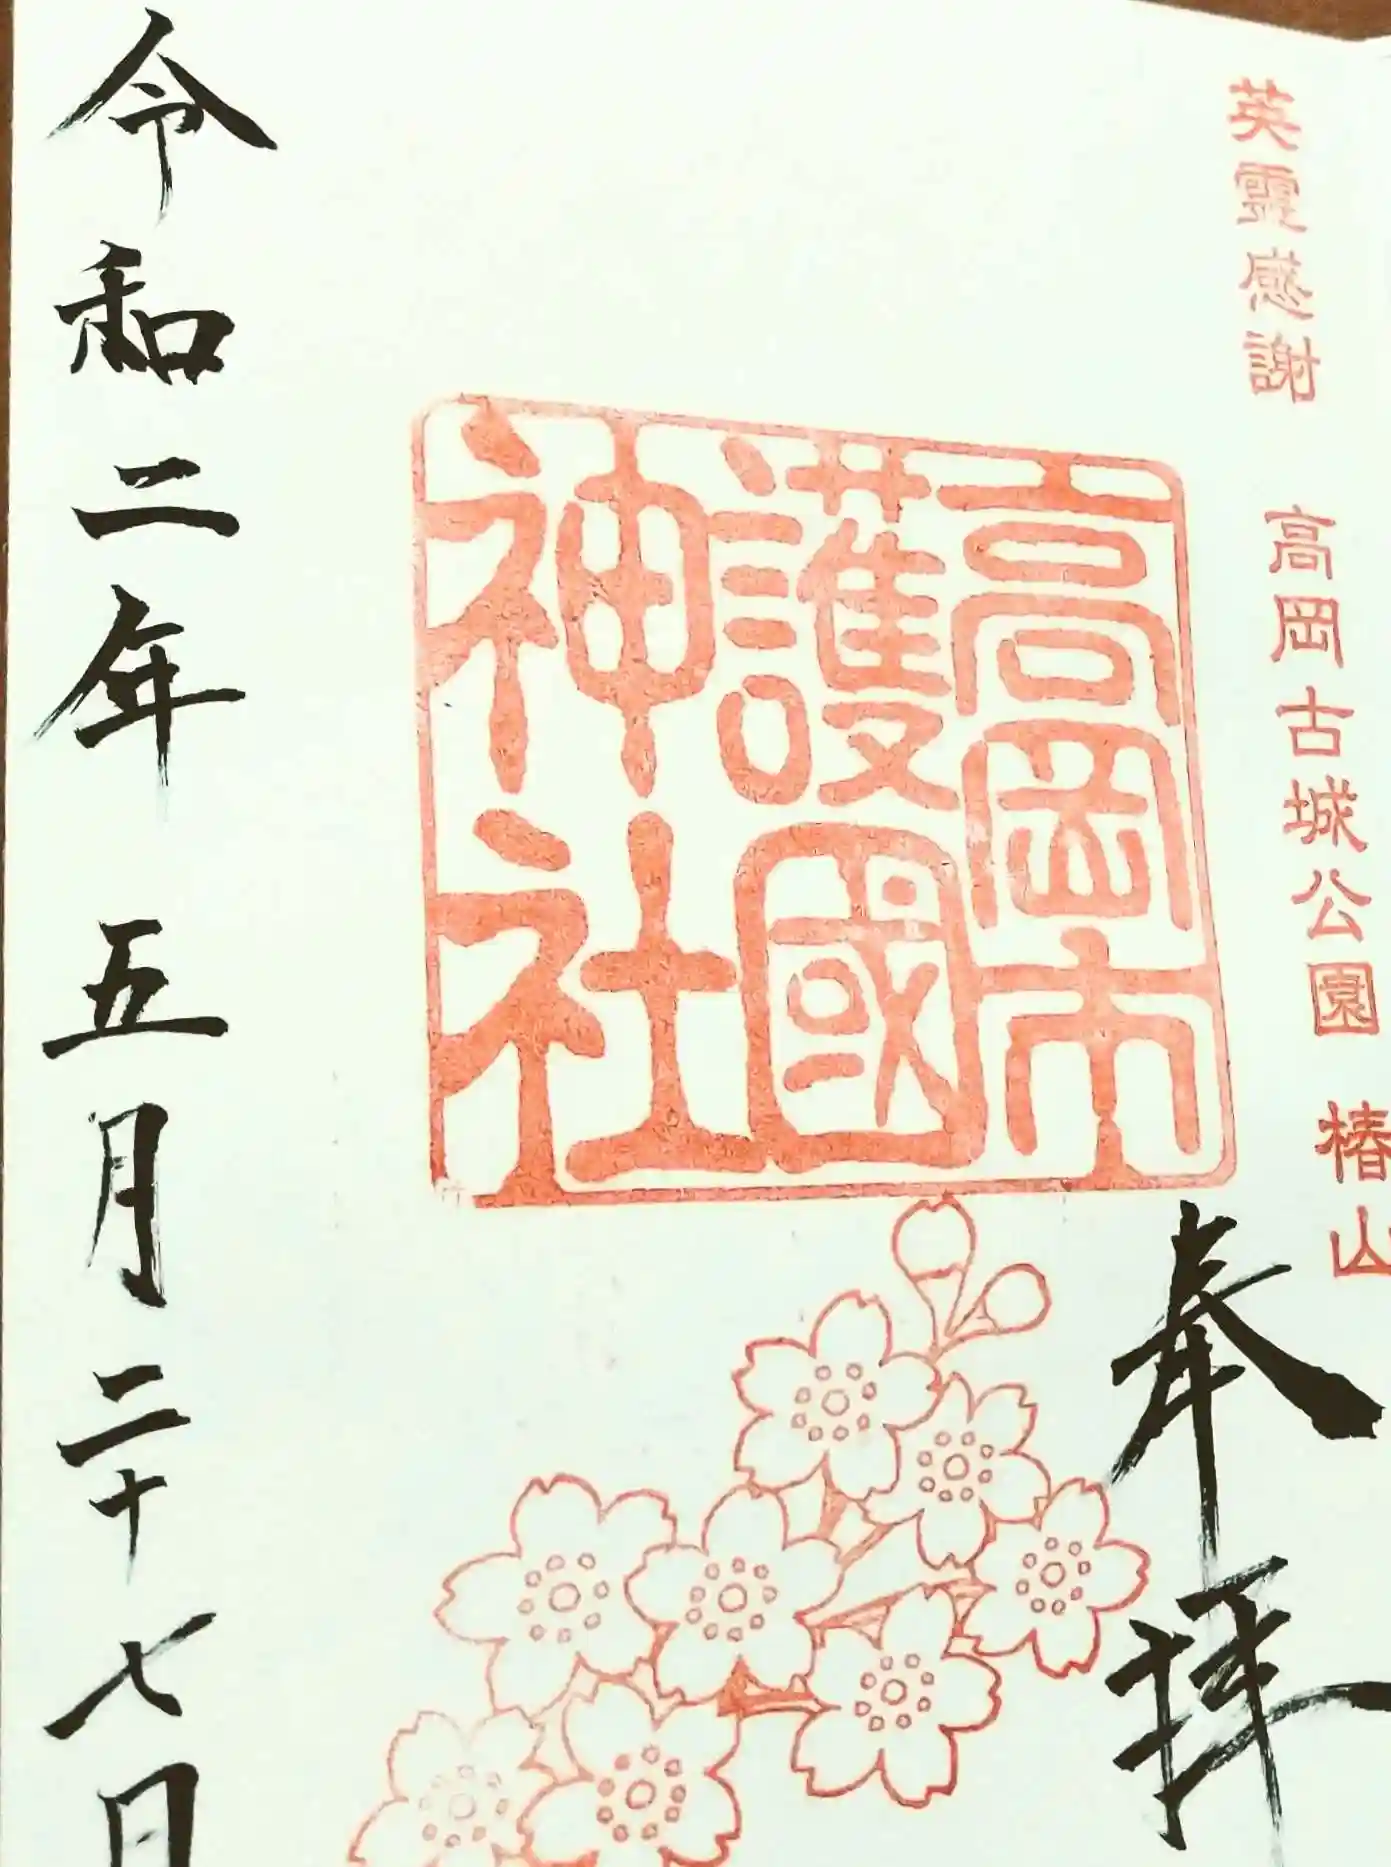 英霊感謝 高岡古城公園 椿山
奉拝
高岡市
護國
神社
令和二年 五月二十七日